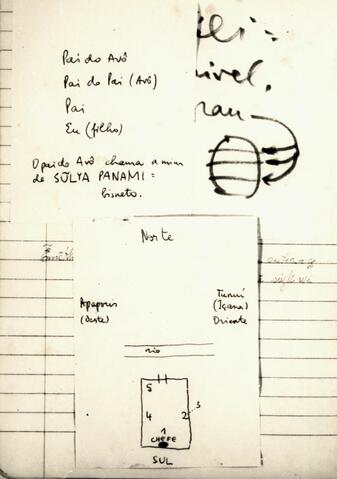 Pai do Avô
Pai do Pai (Avô)
Pai
Eu (filho)
O pai do Avô chama a mim
de SÚLYA PANAMI =
bisneto.
nivel,
Norte
Apaporis
(Oeste)
Tunuí
(Içana)
Oriente
rio
5
4
2
3
1
CHEFE
SUL